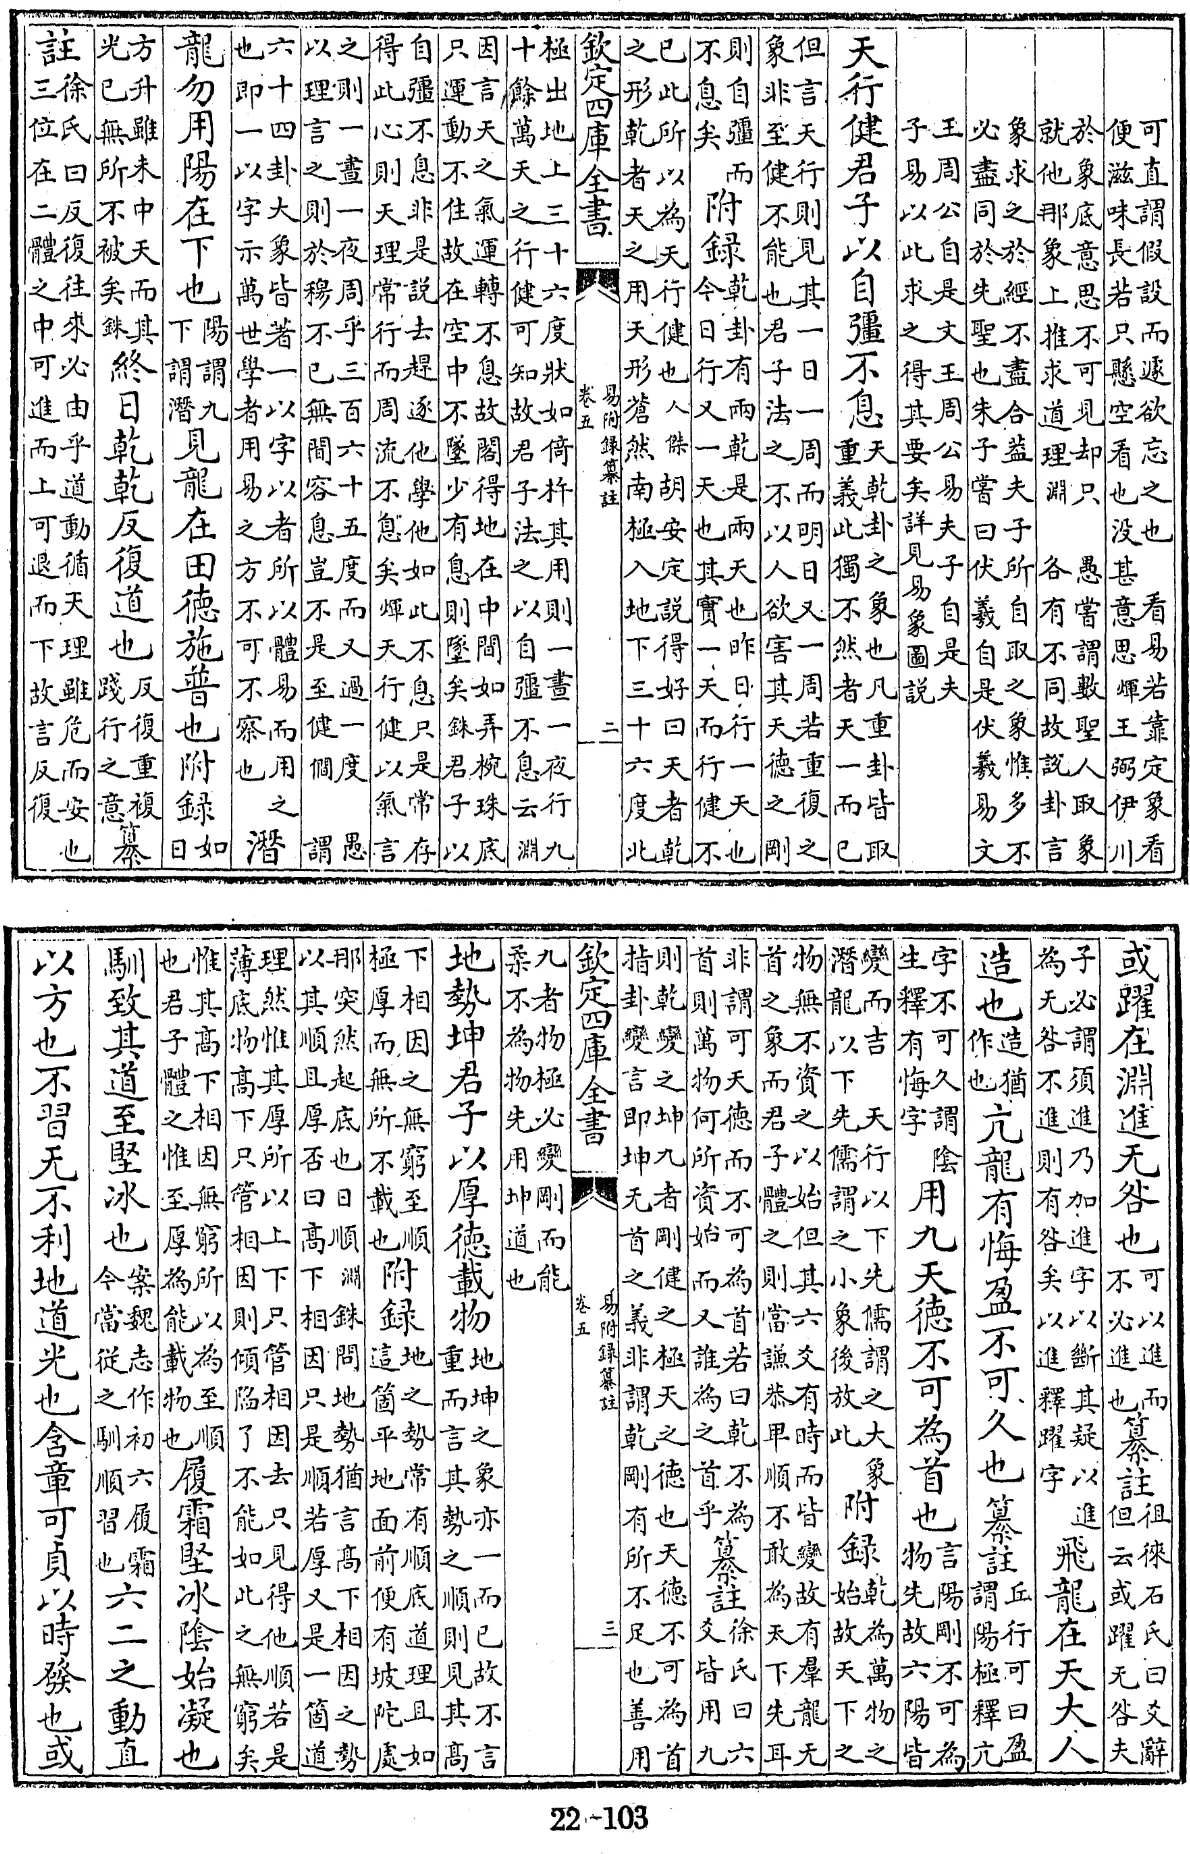 可直謂假設而遽欲忘之也　看易若靠定象看
便滋味長若只懸空看也没甚意思煇　王弼伊川
於象底意思不可見却只　愚嘗謂數聖人取象
就他那象上推求道理淵　各有不同故說卦言
象求之於經不盡合益夫子所自取之象惟多不
必盡同於先聖也朱子嘗曰伏羲自是伏羲易文
王周公自是文王周公易夫子自是夫
子易以此求之得其要矣詳見易象圖說
天行健君子以自彊不息
天乾卦之象也凡重卦皆取
重義此獨不然者天一而已
但言天行則見其一日一周而明日又一周若重復之
象非至健不能也君子法之不以人欲害其天德之剛
則自彊而
不息矣
附録
乾卦有兩乾是兩天也昨日行一天也
今日行又一天也其實一天而行健不
已此所以為天行健也人傑胡安定說得好曰天者乾
之形乾者天之用天形蒼然南極入地下三十六度北
欽定四庫全書　易附録纂註　卷五　二
極出地上三十六度狀如倚杵其用則一晝一夜行九
十餘萬天之行健可知故君子法之以自彊不息云淵
因言天之氣運轉不息故閣得地在中間如弄椀珠底
只運動不住故在空中不墜少有息則墜矣銖君子以
自彊不息非是說去趕逐他學他如此不息只是常存
得此心則天理常行而周流不息矣煇天行健以氣言
之則一晝一夜周乎三百六十五度而又過一度　愚
以理言之則於穆不已無間容息豈不是至健僩　謂
六十四卦大象皆著一以字以者所以體易而用之
也即一以字示萬世學者用易之方不可不察也
潛
龍勿用陽在下也
陽謂九
下謂潛
見龍在田德施普也附録
如
日
方升雖未中天而其
光已無所不被矣銖
終日乾乾反復道也
反復重複
踐行之意
纂
註
徐氏曰反復往來必由乎道動循天理雖危而安也
三位在二體之中可進而上可退而下故言反復
或躍在淵進无咎也
可以進而
不必進也
纂註
徂徠石氏曰爻辭
但云或躍无咎夫
子必謂須進乃加進字以斷其疑以進
為无咎不進則有咎矣以進釋躍字
飛龍在天大人
造也
造猶
作也
亢龍有悔盈不可久也纂註
丘行可曰盈
謂陽極釋亢
字不可久謂陰
生釋有悔字
用九天德不可為首也
言陽剛不可為
物先故六陽皆
變而吉　天行以下先儒謂之大象
潛龍以下先儒謂之小象後放此
附録
乾為萬物之
始故天下之
物無不資之以始但其六爻有時而皆變故有羣龍无
首之象而君子體之則當謙恭卑順不敢為天下先耳
非謂可天德而不可為首若曰乾不為
首則萬物何所資始而又誰為之首乎
纂註
徐氏曰六
爻皆用九
則乾變之坤九者剛健之極天之德也天德不可為首
指卦變言即坤无首之義非謂乾剛有所不足也善用
欽定四庫全書　易附録纂註　卷五　三
九者物極必變剛而能
柔不為物先用坤道也
地勢坤君子以厚德載物
地坤之象亦一而已故不言
重而言其勢之順則見其高
下相因之無窮至順
極厚而無所不載也
附録
地之勢常有順底道理且如
這箇平地面前便有坡陀處
那突然起底也曰順淵銖問地勢猶言高下相因之勢
以其順且厚否曰高下相因只是順若厚又是一箇道
理然惟其厚所以上下只管相因去只見得他順若是
薄底物高下只管相因則傾陷了不能如此之無窮矣
惟其高下相因無窮所以為至順
也君子體之惟至厚為能載物也
履霜堅冰陰始凝也
馴致其道至堅冰也
案魏志作初六履霜
今當從之馴順習也
六二之動直
以方也不習无不利地道光也含章可貞以時發也或
22-103